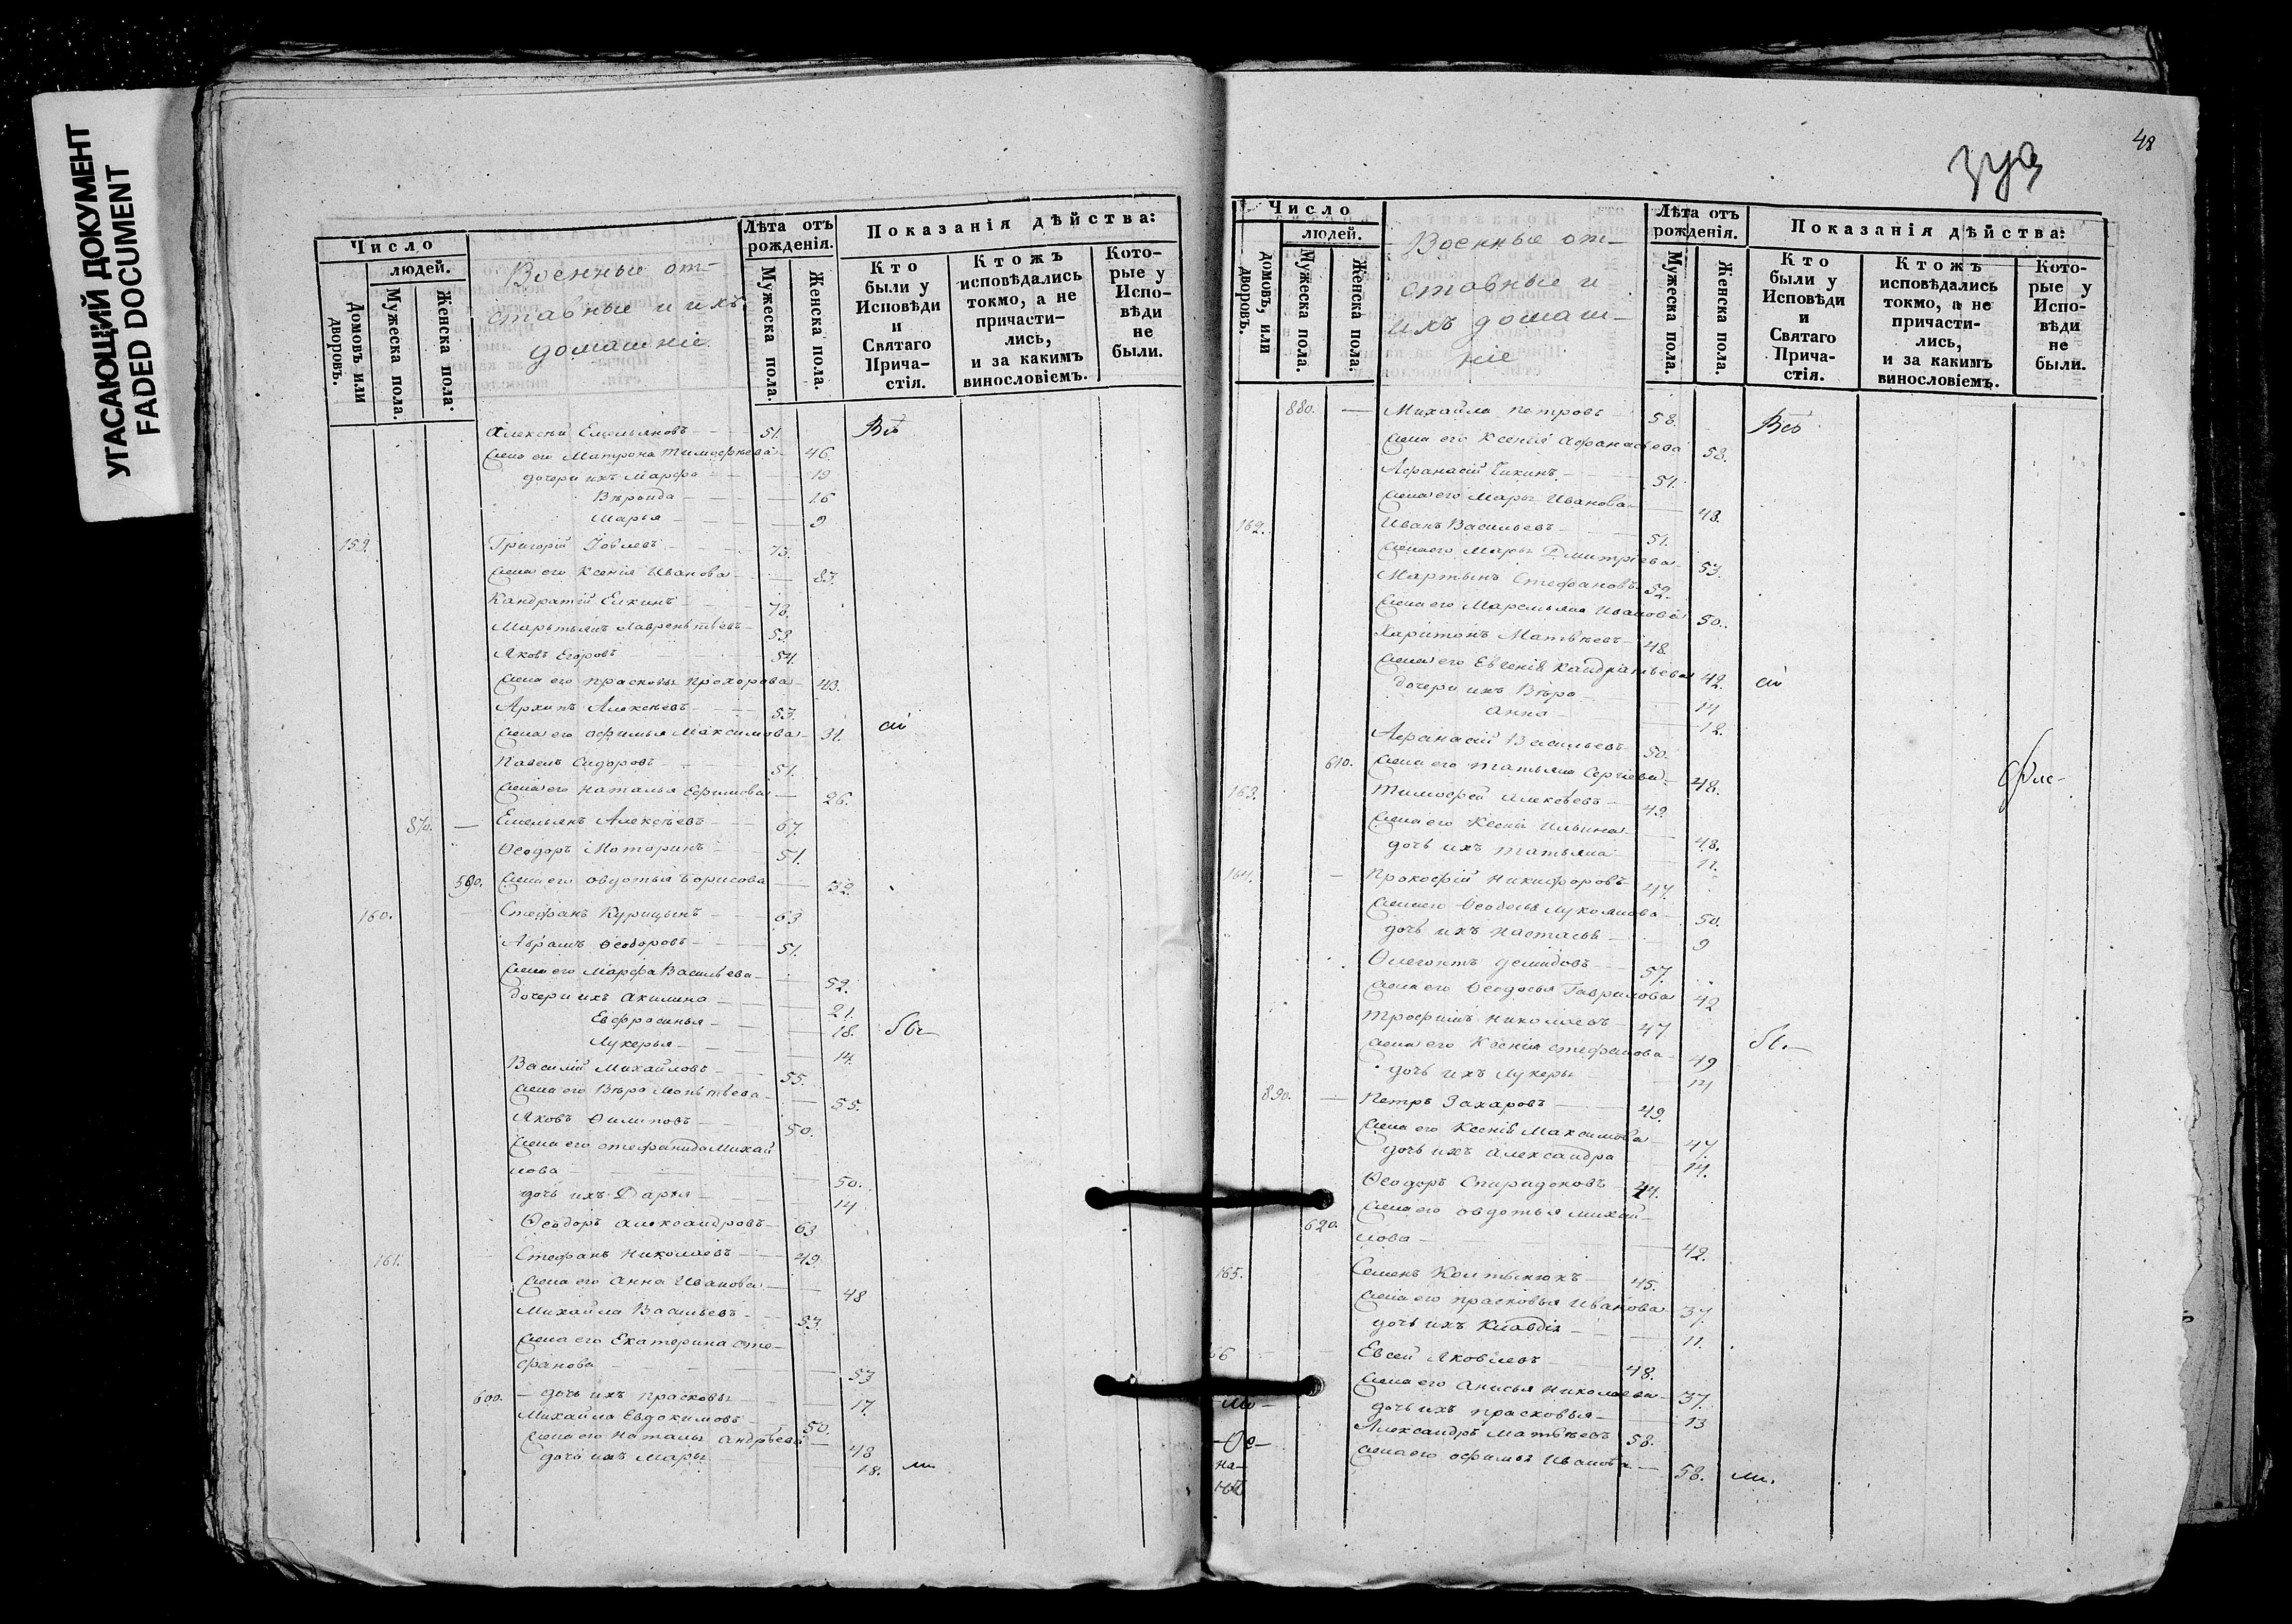 УГАСАЮЩИЙ ДОКУМЕНТ
FADED DOCUMENT
Число
людей.
Домовъ или дворовъ.
Мужеска пола.
Женска пола.
Военные от-
ставные и ихъ
домашніе
Лѣта отъ рожденія.
Мужеска пола.
Женска пола.
Показанія дѣйства:
Кто были у Исповѣди и Святаго Прича-стія.
Ктожъ исповѣдались токмо, а не причасти-лись, и за какимъ винословіемъ.
Кото-рые у Испо-вѣди не были.
Алексѣй Емельяновъ 51. Всѣ
Жена его Матрона Тимофѣева 46
дочери ихъ Марфа 19
16
Марья 9
159. Григорій Іовлевъ 73.
Жена его Ксенія Иванова 83.
Кандратій Елкинъ 78.
Мартынъ Лаврентьевъ 53.
Яковъ Егоровъ 54.
Жена его Прасковья Прохорова 43.
Архипъ Алексѣевъ 53.
Жена его Офимья Максимова 31. сіи
Павелъ Сидоровъ 51.
Жена его Наталья Ефимова 26.
870. — Емельянъ Алексѣевъ 67.
Ѳеодоръ Моторинъ 51.
590. Жена его Овдотья Борисова 32.
160. Стефанъ Курицынъ 63
Абрамъ Ѳеодоровъ 51.
Жена его Марфа Васильева 52.
дочери ихъ Акилина 21.
Евфросинья 18. бы-
Лукерья 14.
Василій Михайловъ 55.
Жена его Вѣра 55.
Яковъ Филиповъ 50.
Жена его Стефанида Михай
лова 50.
дочь ихъ Дарья 14
Ѳеодоръ Александровъ 63
161. Стефанъ Николаевъ 49.
Жена его Анна Иванова 48
Михайла Васильевъ 53.
Жена его Екатерина Сте-
фанова 53
600. — дочь ихъ Прасковья 17.
Михайла Евдокимовъ 50.
Жена его Наталья Андрѣева 48
дочь ихъ Марья 18. ли
48
Число
людей.
Домовъ, или дворовъ.
Мужеска пола.
Женска пола.
Военные от-
ставные и
ихъ домаш-
ніе
Лѣта отъ рожденія.
Мужеска пола.
Женска пола.
Показанія дѣйства:
Кто были у Исповѣди и Святаго Прича-стія.
Ктожъ исповѣдались токмо, а не причасти-лись, и за какимъ винословіемъ.
Кото-рые у Испо-вѣди не были.
880. — Михайла Петровъ 58. Всѣ
Жена его Ксенія Афанасьева 58.
Афанасій 51.
Жена его Марья Иванова 48.
162. Иванъ Васильевъ 51.
Жена его Марья Дмитріева 53.
Мартынъ Стефановъ 52.
Жена его Маремьяна Иванова 50.
Харитонъ Матвѣевъ 48.
Жена его Евгенія Кандратьева 42. сіи
дочери ихъ Вѣра 14
Анна 12.
Афанасій Васильевъ 50.
610. Жена его Татьяна Сергіева 48.
163. Тимофей Алексѣевъ 49.
Жена его Ксенія Ильина 48.
дочь ихъ Татьяна 11.
164. — Прокофій Никифоровъ 47.
Жена его Ѳеодосья Лукоянова 50.
дочь ихъ Настасья 9
Олегонтъ Демидовъ 57.
Жена его Ѳеодосья Гаврилова 42
Трофимъ Николаевъ 47
Жена его Ксенія Стефанова 49 бы-
дочь ихъ Лукерья 14
890. — Петръ Захаровъ 49.
Жена его Ксенія Максимова 47.
дочь ихъ Александра 14.
Ѳеодоръ Спиридоновъ 44.
Жена его Овдотья Михай-
620. лова 42.
165. Семенъ 45.
Жена его Прасковья Иванова 37.
дочь ихъ Клавдія 11.
Евсей Яковлевъ 48.
Жена его Анисья Николаева 37.
дочь ихъ Прасковья 13
Александръ Матвѣевъ 58.
Жена его Офимья Иванова 58. ли.